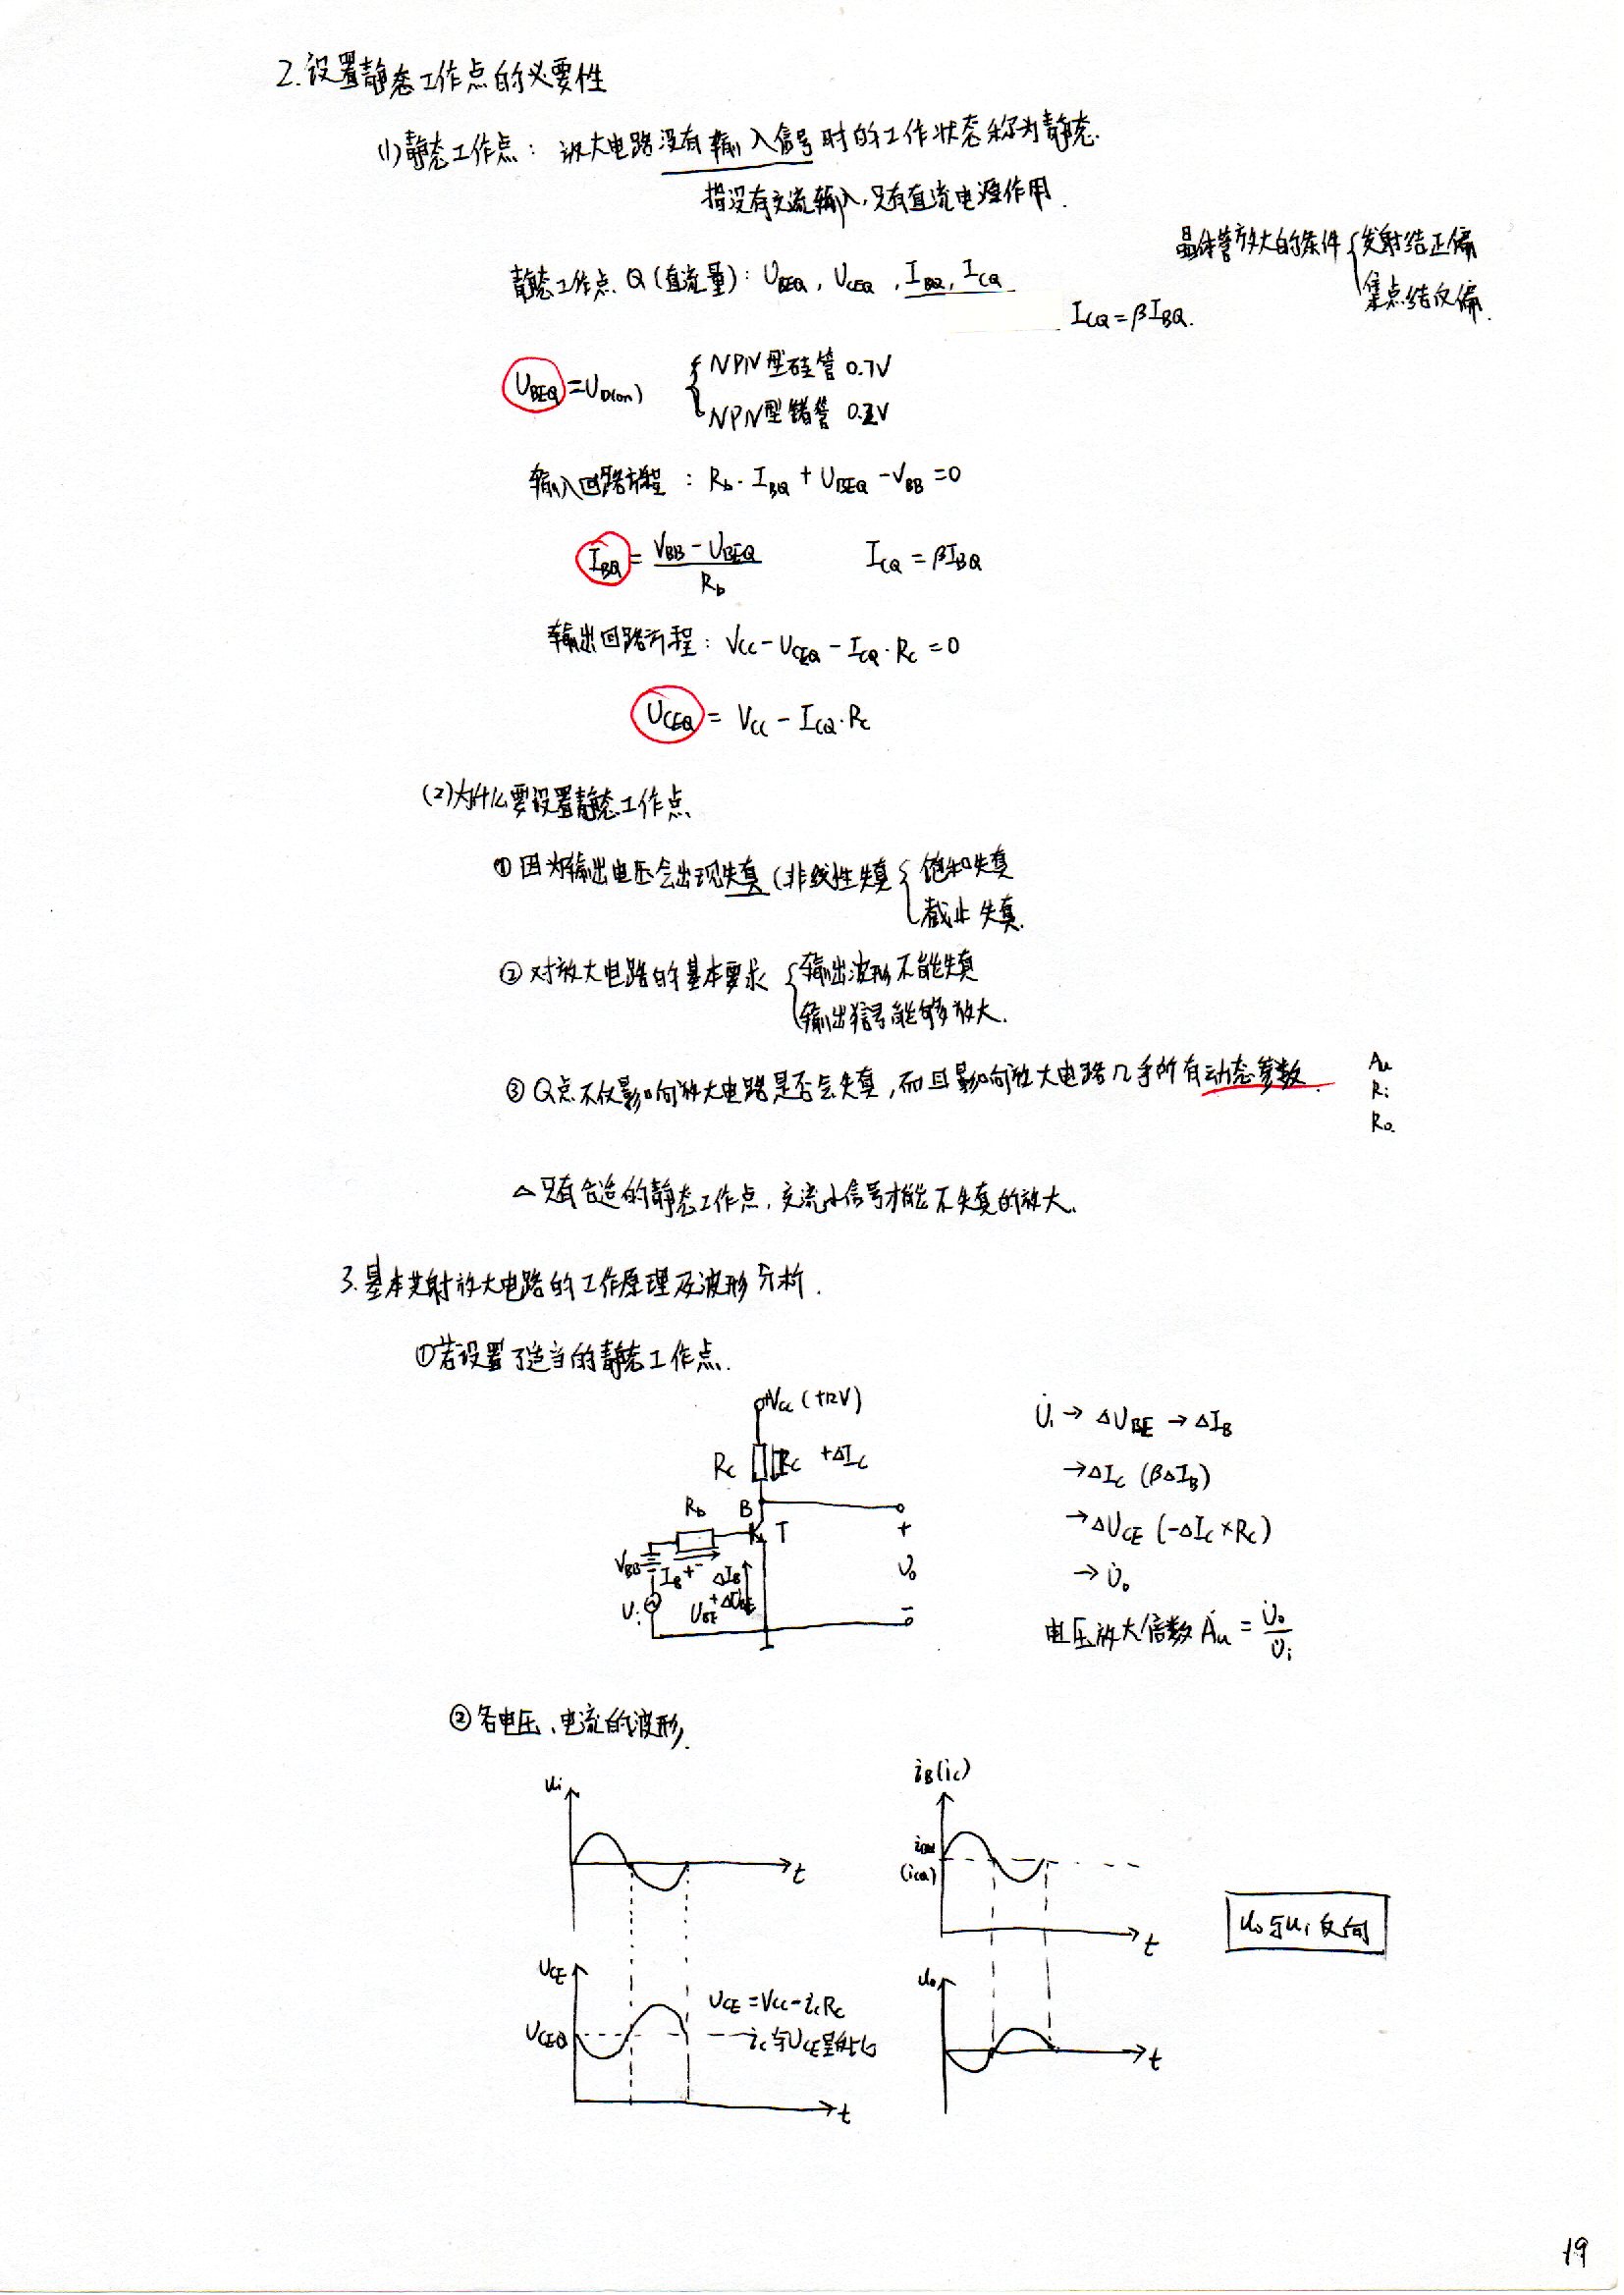 2.设置静态工作点的必要性
(1)静态工作点：放大电路没有输入信号时的工作状态称为静态.
指没有交流输入,只有直流电源作用.
晶体管放大的条件{发射结正偏
集点结反偏.
静态工作点Q(直流量)：UBEQ, UCEQ, IBQ, ICQ
ICQ=βIBQ.
UBEQ=UD(on) {NPN型硅管 0.7V
NPN型锗管 0.2V
输入回路方程：Rb·IBQ+UBEQ-VBB=0
IBQ=(VBB-UBEQ)/Rb ICQ=βIBQ
输出回路方程：VCC-UCEQ-ICQ·Rc=0
UCEQ=VCC-ICQ·Rc
(2)为什么要设置静态工作点
①因为输出电压会出现失真(非线性失真{饱和失真
截止失真.
②对放大电路的基本要求{输出波形不能失真
输出信号能够放大.
③Q点不仅影响放大电路是否会失真,而且影响放大电路几乎所有动态参数.
Au
Ri
Ro.
△只有合适的静态工作点,交流小信号才能不失真的放大.
3.基本共射放大电路的工作原理及波形分析.
①若设置了适当的静态工作点.
+VCC(+12V)
Rc Rc +ΔIc
Rb B T
VBB IB + - ΔIB
Ui UBE +ΔUBE
+
Uo
-
U̇i→ΔUBE→ΔIB
→ΔIc(βΔIB)
→ΔUCE(-ΔIc×Rc)
→U̇o
电压放大倍数Ȧu=U̇o/U̇i
②各电压、电流的波形.
ui
t
iB(ic)
iBQ
(iCQ)
t
uo与ui反向
UCE
UCEQ
UCE=VCC-icRc
ic与UCE呈反比
t
uo
t
19